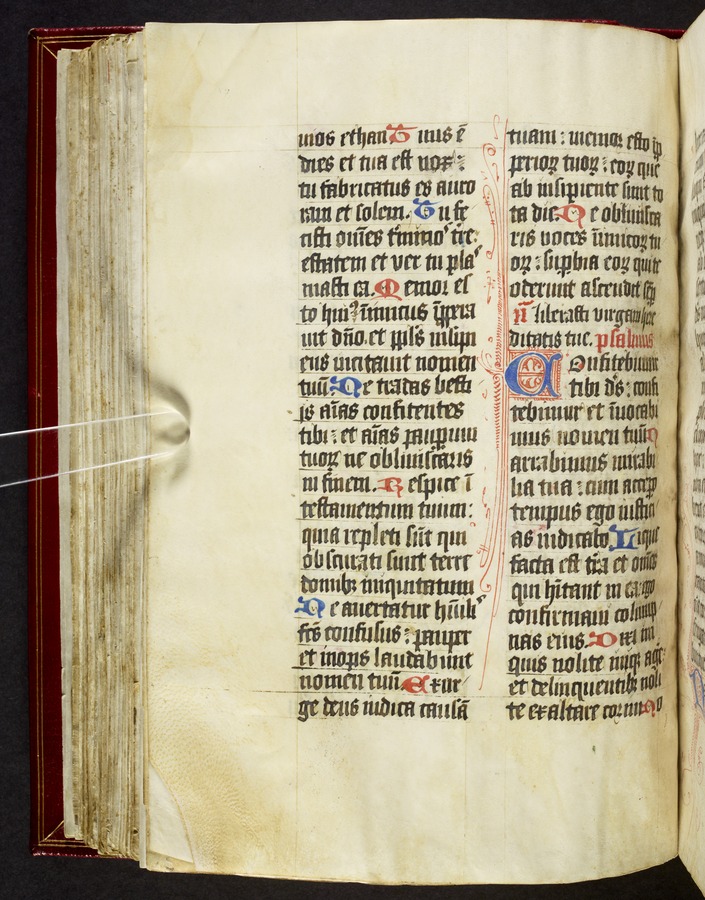 uios ethan Tuus ē
dies et tua est nox :
tu fabricatus es auro
ram et solem. Tu fe
cisti om̄es t̄minos t̄re:
estatem et ver tu plas
masti ea. Memor es
to hui9 īimicus īppera
uit dn̄o et ppl's insipi
ens incitauit nomen
tuū. Ne tradas besti
js aīas confitentes
tibi : et aīas pauperum
tuoꝝ ne obliuiscaris
ni finem. Respice ī
testamentum tuum :
quia repleti sūt qui
obscurati sunt terre
domibꝫ iniquitatum
Ne auertatur hūili9
fc̄s confusus : pauper
et inops laudabunt
nomen tuū. Exur
ge deus iudica causā
tuam : memor esto īp
perioꝝ tuoꝝ : eoꝝ que
ab insipiente sunt to
ta die. Ne obliuisca
ris voces īimicoꝝ tu
oꝝ : supbia eoꝝ qui te
oderunt ascendit semp
liberasti virgam here
ditatis tue. psalmus
Confitebimur
tibi d's : confi
tebimur et īuocabi
mus nomen tuū
arrabimus mirabi
lia tua : cum accepo
tempus ego iustici
as iudicabo. Lique
facta est tr̄a et om̄es
qui hītant in ea : ego
confirmaui columpn
nas eius. Dixi ini
quis nolite iniqꝫ age
et delinquentibꝫ noli
te exaltare cornu No